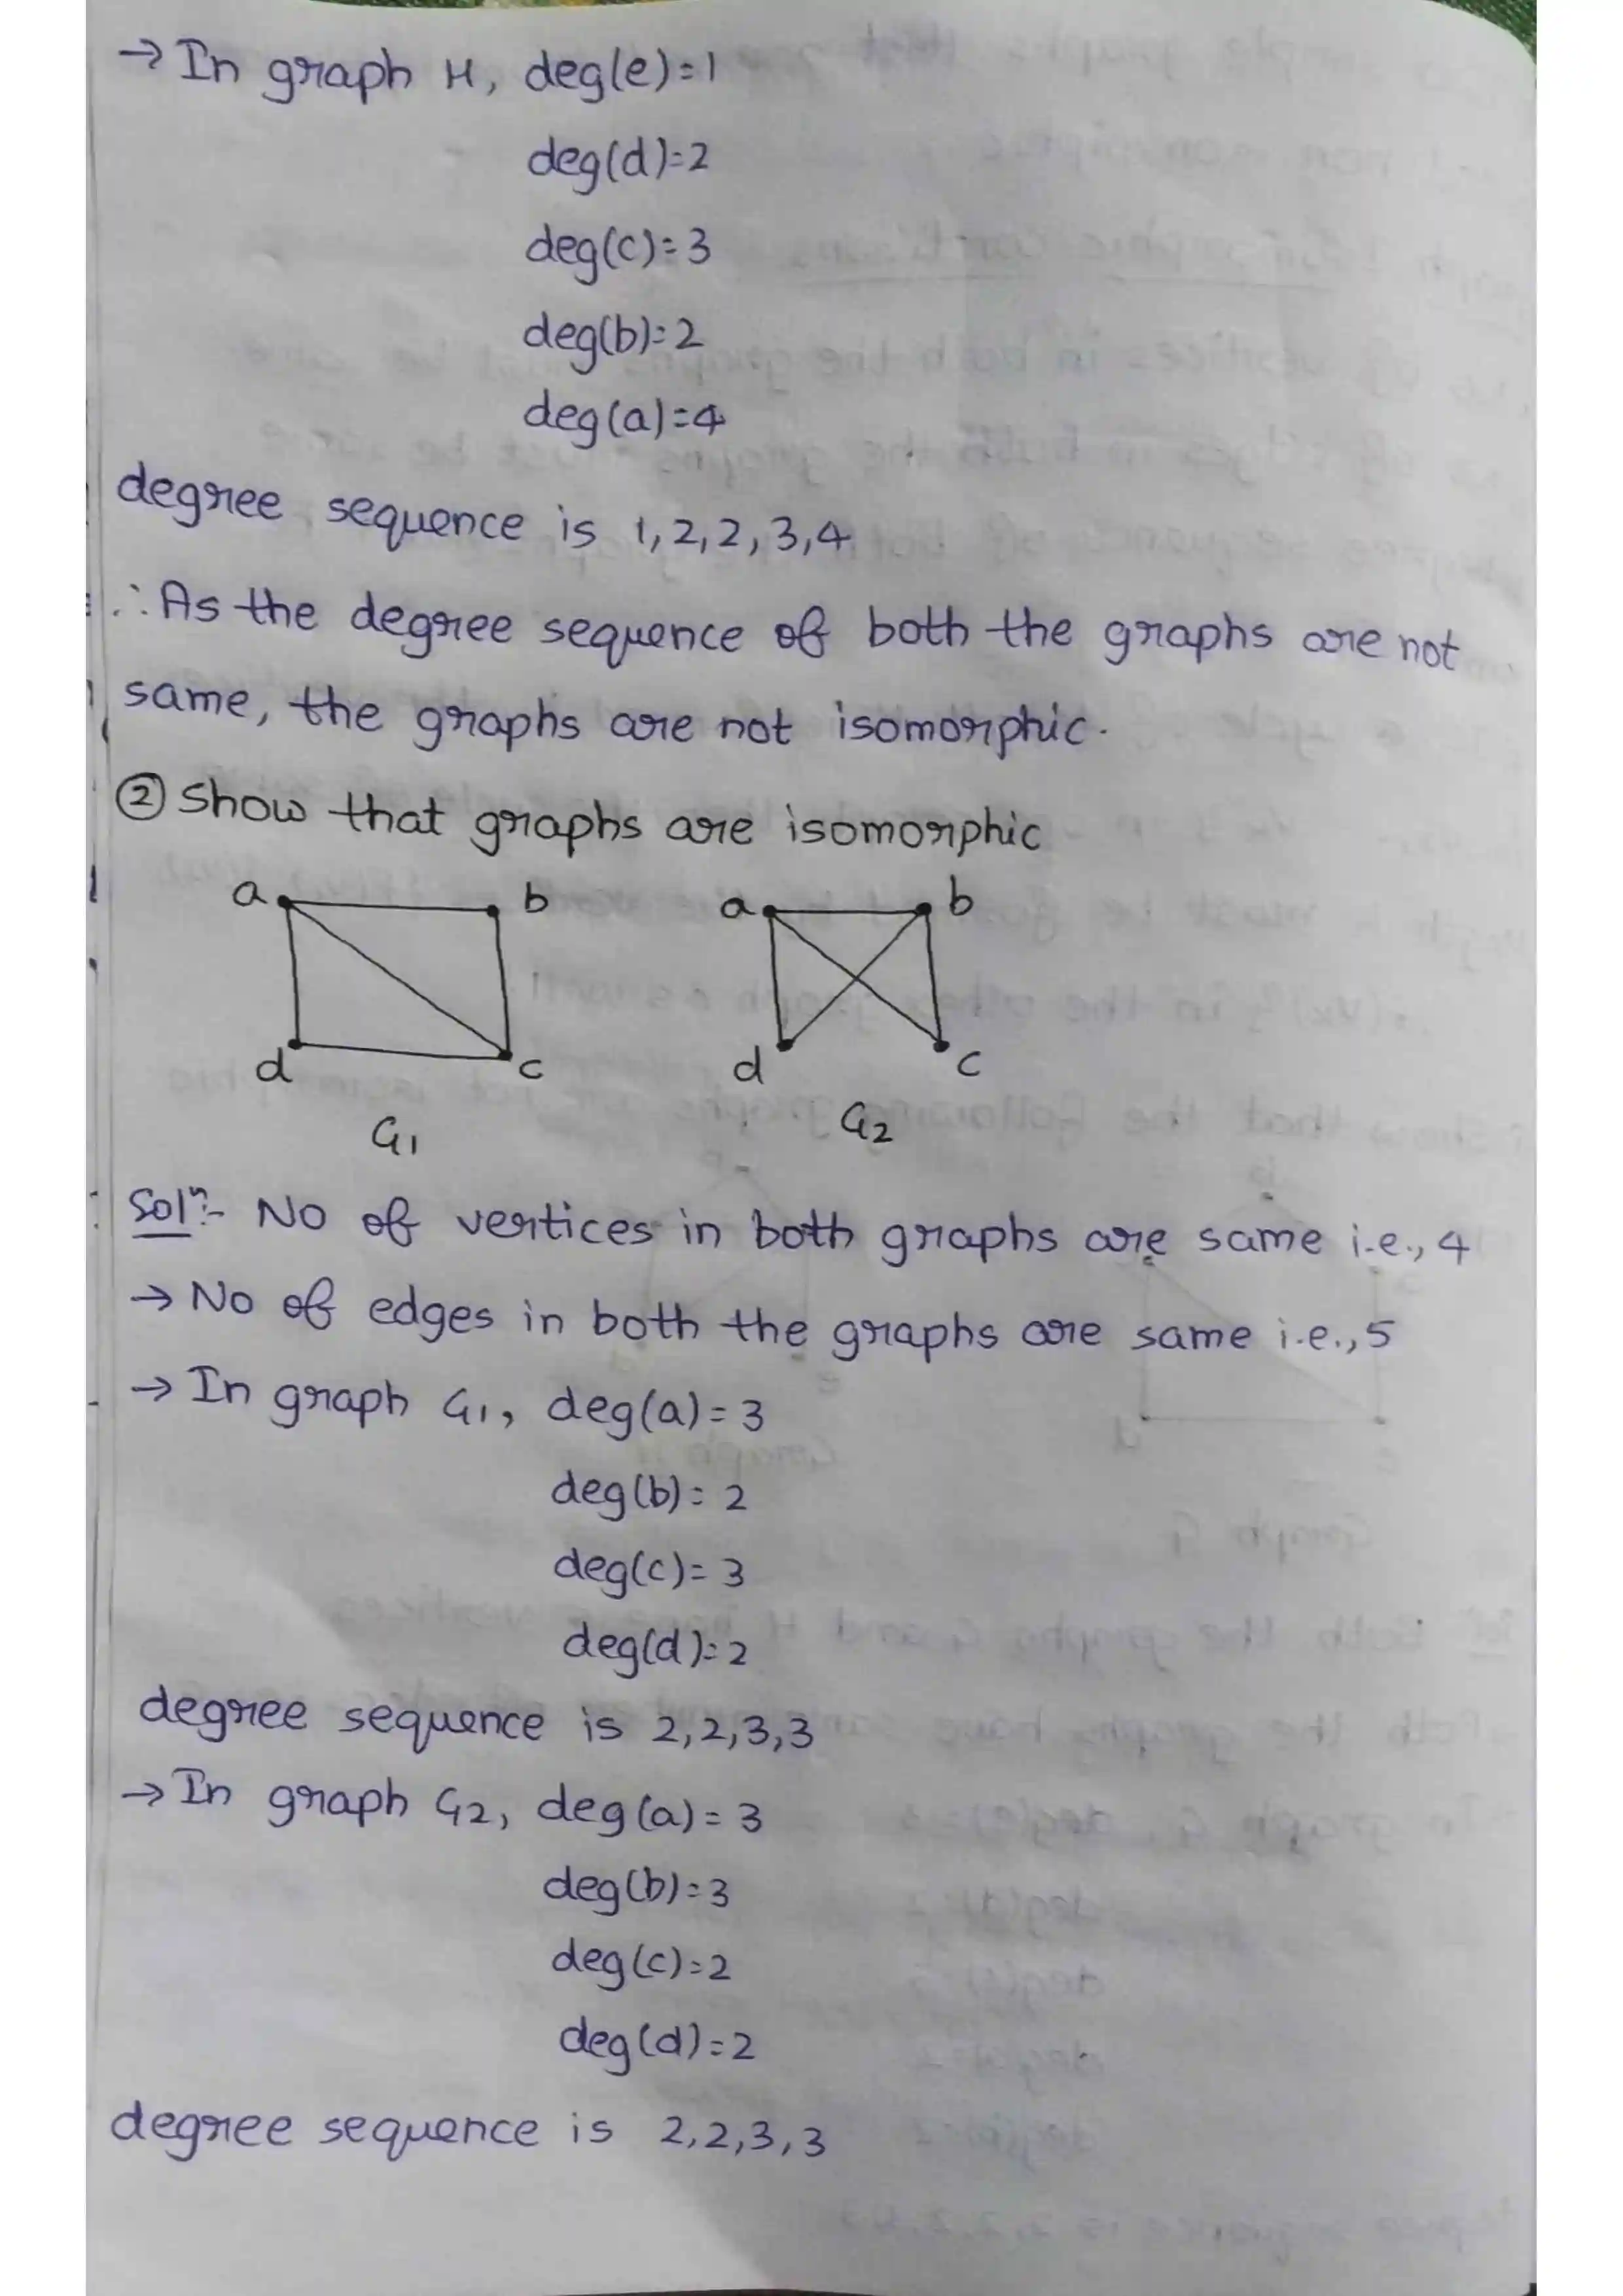 → In graph H, deg(e)=1
deg(d)=2
deg(c)=3
deg(b)=2
deg(a)=4
degree sequence is 1,2,2,3,4
∴ As the degree sequence of both the graphs are not
same, the graphs are not isomorphic.
② Show that graphs are isomorphic
a b a b
d c d c
G1 G2
Solⁿ:- No of vertices in both graphs are same i.e., 4
→ No of edges in both the graphs are same i.e., 5
→ In graph G1, deg(a)= 3
deg(b)= 2
deg(c)= 3
deg(d)=2
degree sequence is 2,2,3,3
→ In graph G2, deg(a)= 3
deg(b)=3
deg(c)=2
deg(d)=2
degree sequence is 2,2,3,3